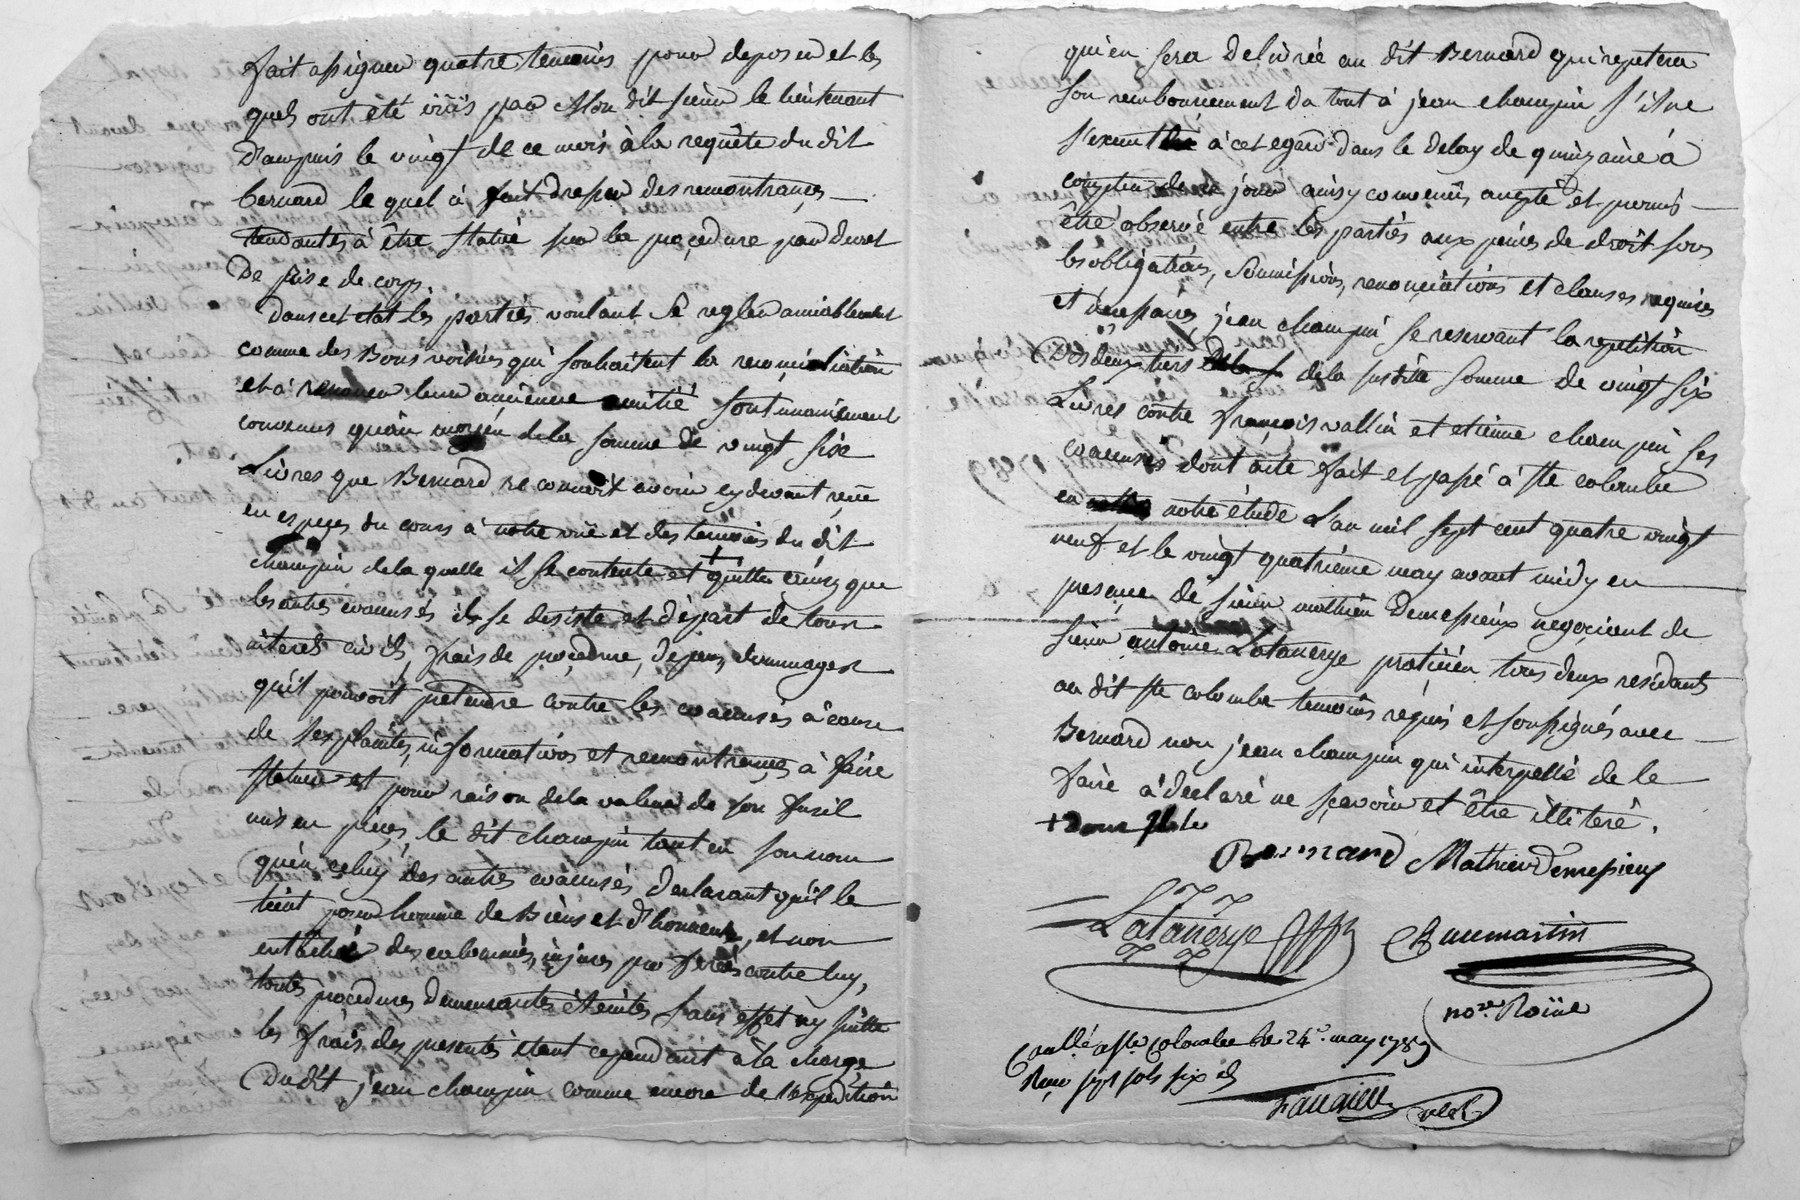 fait assigner quatre temoins pour deposer et les
quels ont été ouïs par Mon dit sieur le lieutenant
D'ampuis le vingt de ce mois à la requête du dit
bernard le quel à fait dresser des remontrances
tendantes à être statué sur la procedure par decret
De prise de corps.
Dans cet etat les parties voulant se regler amiablement
comme des Bons voisins qui souhaitent la reconciliation
et à renouer leur ancienne amitié sont unanimement
convenus qu'au moyen de la somme de vingt six
Livres que Bernard reconnoit avoir cy devant reçue
en especes du cours à notre vüe et des temoins du dit
champin de la quelle il se contente et + quitte ainsy que
les autres coaccusés il se desiste et départ de tous
interets civils, frais de procedure, depens, dommages
qu'il pouvoit pretendre contre les coaccusés à cause
de ses plaintes, informations et remontrances à faire
statuer et pour raison de la valeur de son fusil
mis en pieces, le dit champin tant en son nom
qu'en celuy des autres coaccusés declarant qu'il le
tient pour homme de Biens et d'honneur, et non
entaché des calomnies, injures proferées contre luy,
toutes procedures demeurantes éteintes sans effet ny suitte
les frais des presentes étant cependant à la charge
Du dit jean champin comme encore de l'expedition
qui en sera delivrée au dit Bernard qui repetera
son remboursement du tout à jean champin s'il ne
s'execute à cet egard dans le delay de quinzaine à
compter de ce jour ainsy convenu accepté et promis
être observé entre les parties aux peines de droit sous
les obligations, soumissions, renonciations et clauses requises
et necessaires jean champin se reservant la repetition
Des deux tiers de la susditte somme de vingt six
Livres contre françois vallin et etienne champin ses
coaccusés dont acte fait et passé à ste colombe
en notre étude L'an mil sept cent quatre vingt
neuf et le vingt quatrieme may avant midy en
presence de sieur mathieu Demepieux negociant de
sieur antoine Latanerye praticien tous deux residants
au dit ste colombe temoins requis et soussignés avec
Bernard non jean champin qui interpellé de le
faire à declaré ne sçavoir et être illiteré.
+ Donne
Bernard Mathieu Demepieux
Latanerye Chaumartin
no.re Roïal
Con.llé a ste Colombe le 24.e may 1789
Reçu sept sols six d